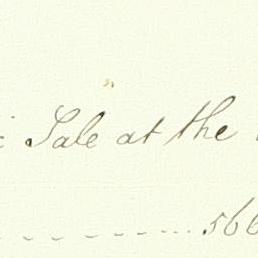 Sale at the
566